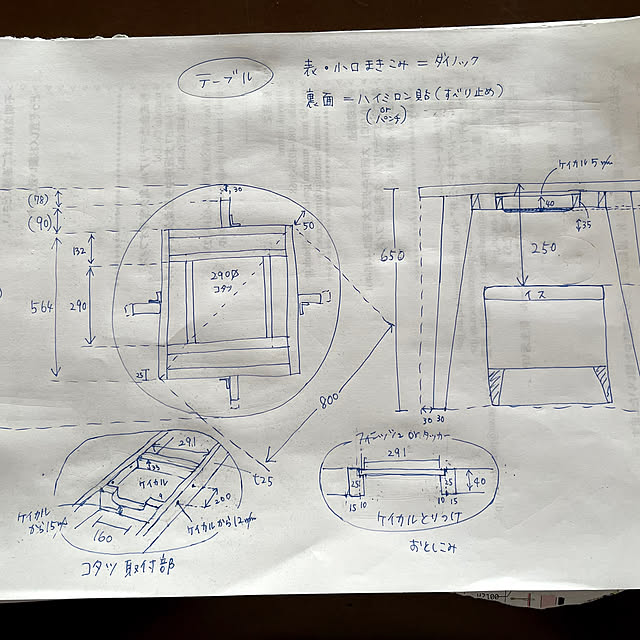 テーブル
表・小口まきこみ = ダイノック
裏面 = ハイミロン貼(すべり止め)
(or パンチ)
ケイカル5㎜
30
(78)
(90)
50
132
40
35
650
250
290Φ
コタツ
564
290
イス
25
800
30 30
フィニッシュ or タッカー
291
291
35
t25
ケイカル
25
25
40
200
ケイカル
から15㎜
ケイカルから12㎜
15 10
10 15
160
ケイカルとりつけ
おとしこみ
コタツ取付部